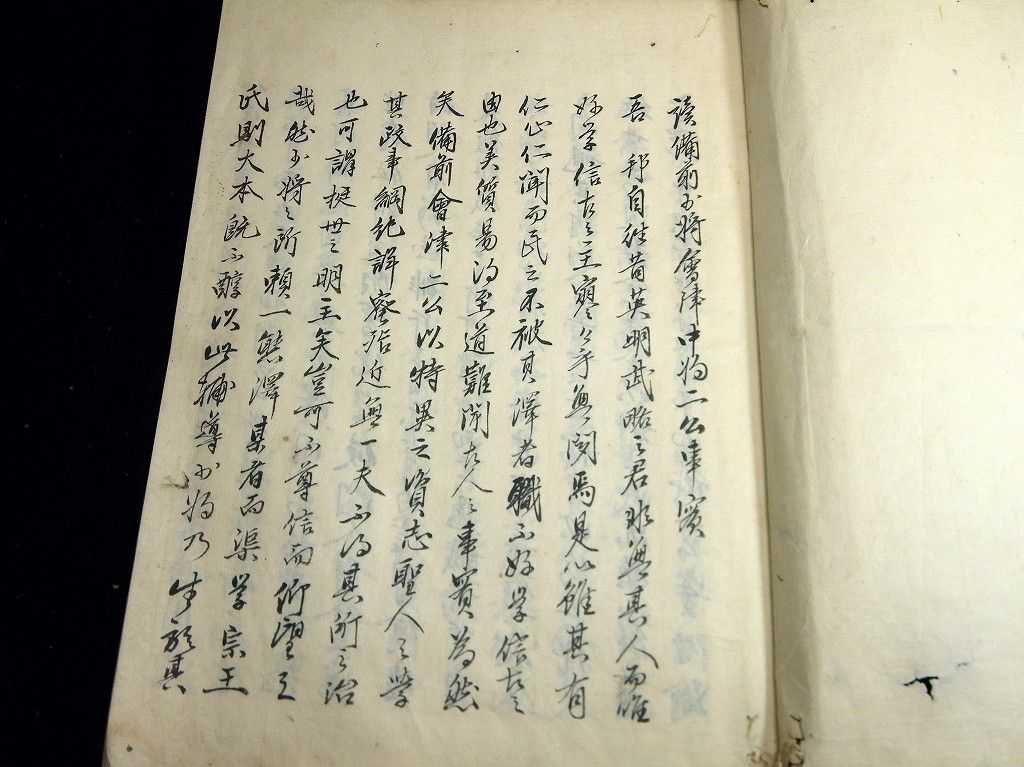 讀備前少将會津中将二公事實
吾邦自往昔英明武略之君非無其人而唯
好学信古之主寥々乎無聞焉是以雖其有
仁心仁聞而民之不被其澤者職不好学信古之
由也美質易得至道難聞古人之事實為然
矣備前會津二公以特異之資志聖人之学
其政事綱紀詳密治近無一夫不得其所之治
也可謂挺世之明主矣豈可不尊信而仰望之
哉然少将之所頼一熊澤某者而渠学宗王
氏則大本既不醇以此輔導少将乃其